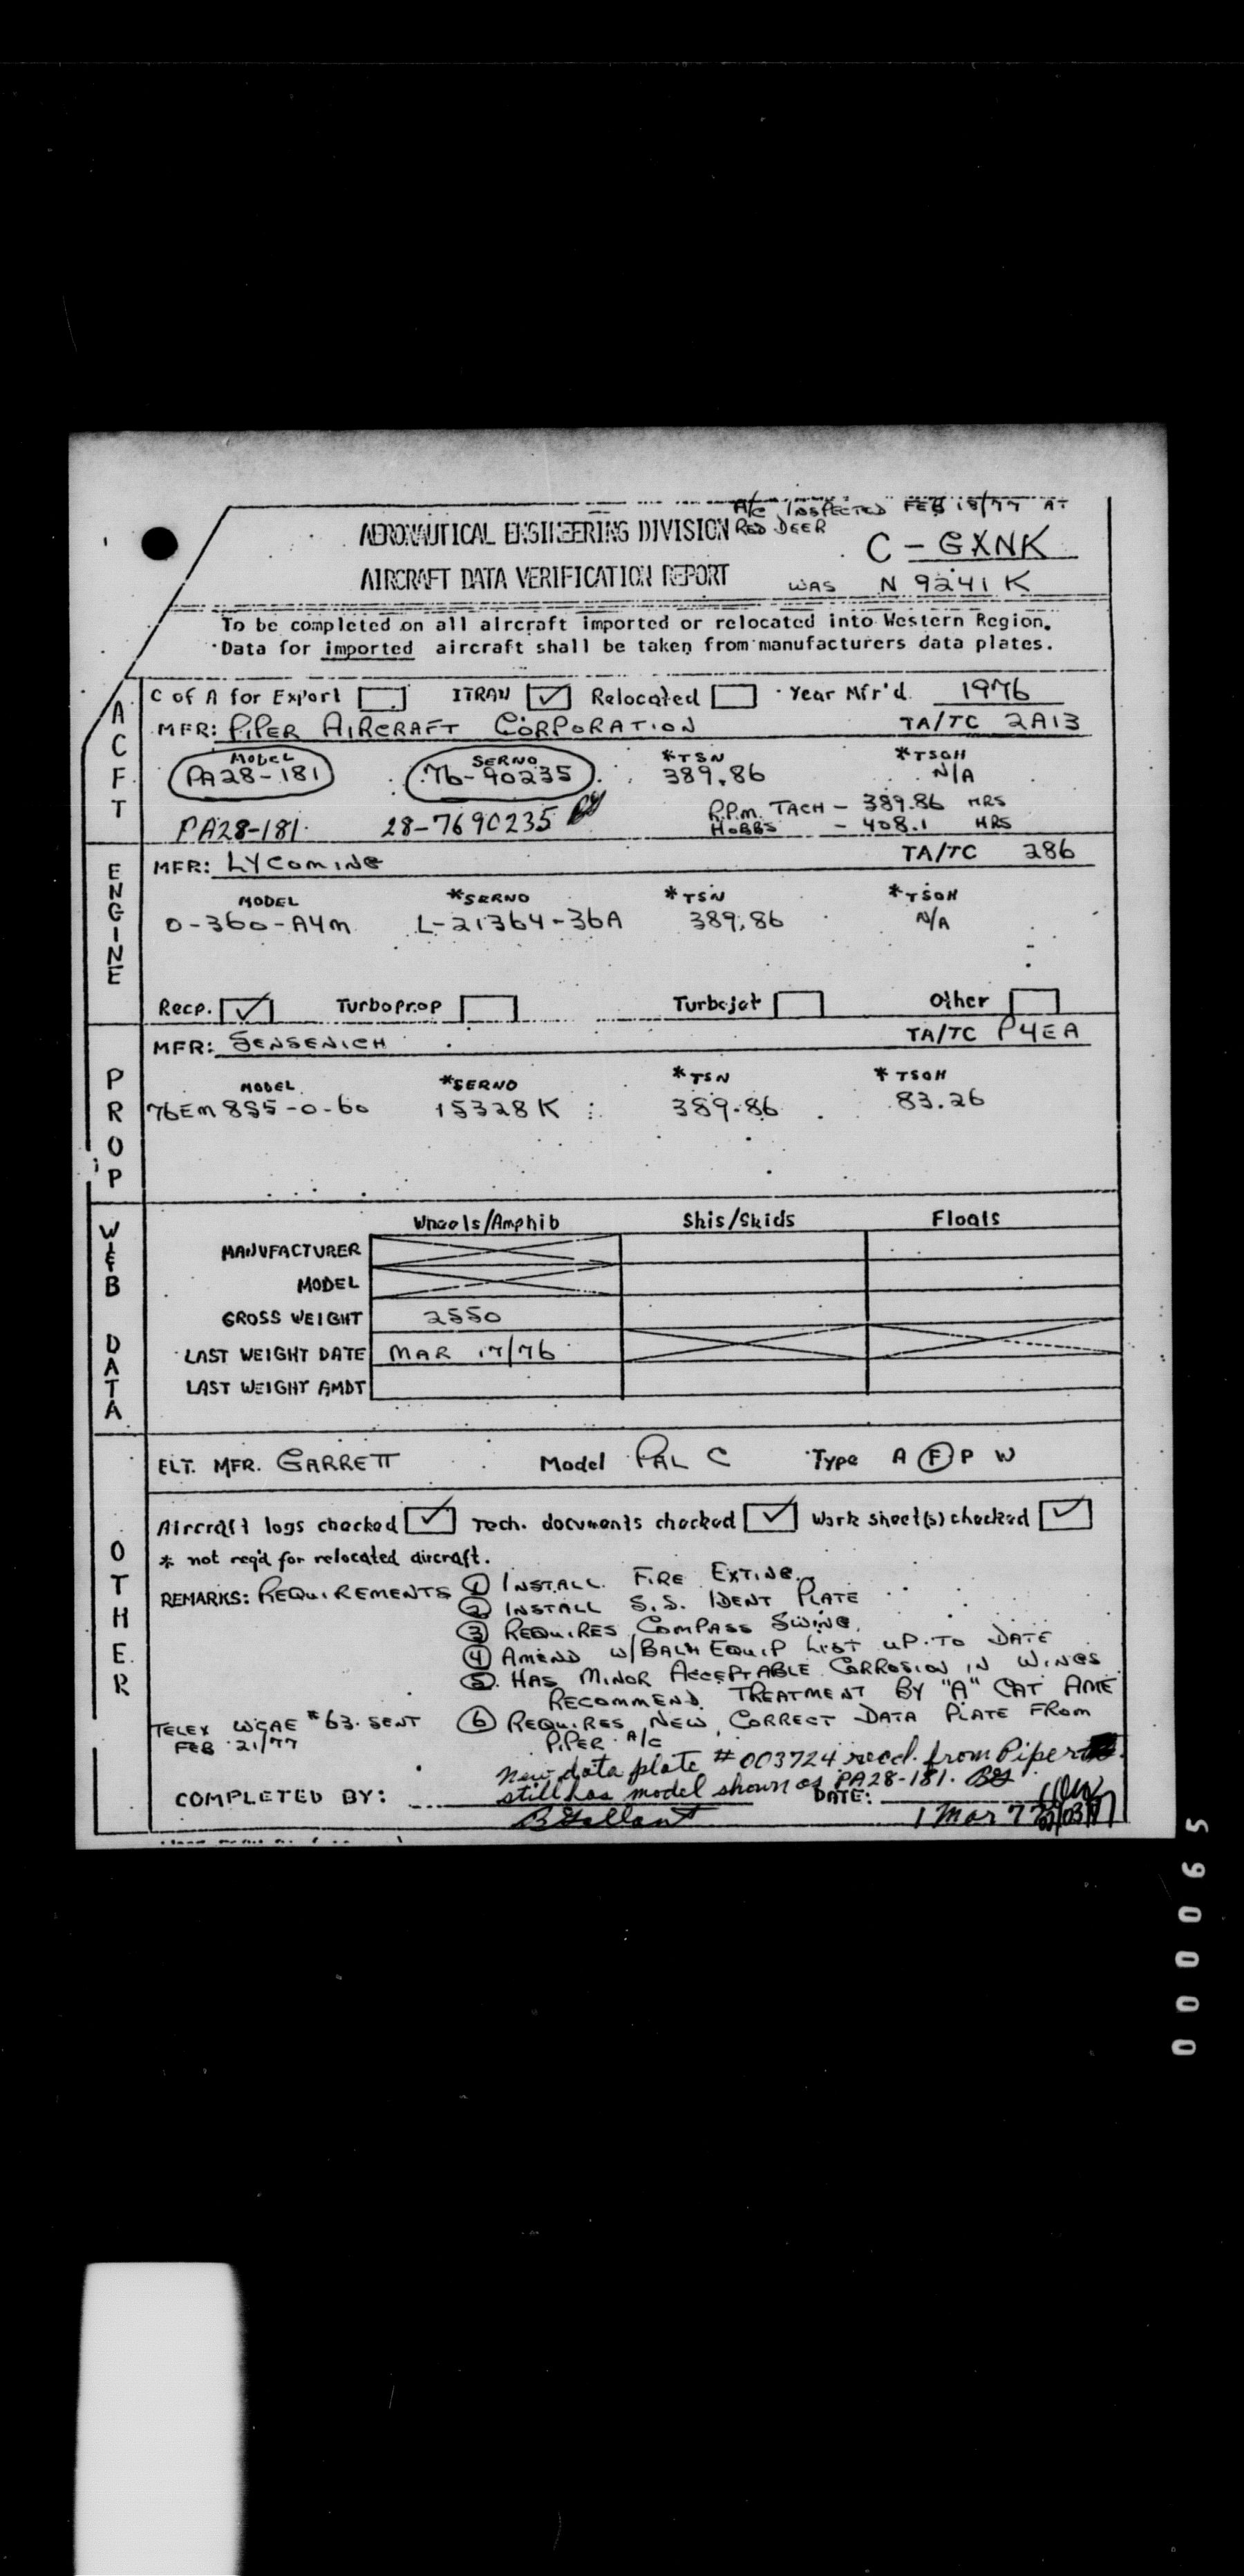 A/C INSPECTED FEB 18/77 AT
RED DEER
AERONAUTICAL ENGINEERING DIVISION
C - GXNK
AIRCRAFT DATA VERIFICATION REPORT
WAS N 9241 K
To be completed on all aircraft imported or relocated into Western Region.
Data for imported aircraft shall be taken from manufacturers data plates.
ACFT
C of A for Export ITRAN ✓ Relocated Year Mfr'd. 1976
MFR: PIPER AIRCRAFT CORPORATION TA/TC 2A13
MODEL SERNO *TSN *TSOH
PA28-181 76-90235 389.86 N/A
R.P.M. TACH - 389.86 HRS
PA28-181 28-7690235
HOBBS - 408.1 HRS
ENGINE
MFR: LYCOMING TA/TC 286
MODEL *SERNO *TSN *TSOH
O-360-A4M L-21364-36A 389.86 N/A
Recp. ✓ Turboprop Turbojet Other
PROP
MFR: SENSENICH TA/TC P4EA
MODEL *SERNO *TSN *TSOH
76EM8S5-0-60 15328K 389.86 83.26
W&B DATA
Wheels/Amphib Skis/Skids Floats
MANUFACTURER
MODEL
GROSS WEIGHT 2550
LAST WEIGHT DATE MAR 17/76
LAST WEIGHT AMDT
OTHER
ELT. MFR. GARRETT Model PAL C Type A F P W
Aircraft logs checked ✓ Tech. documents checked ✓ Work sheet(s) checked ✓
* not req'd for relocated aircraft.
REMARKS: REQUIREMENTS ① INSTALL FIRE EXTING.
② INSTALL S.S. IDENT PLATE
③ REQUIRES COMPASS SWING.
④ AMEND W/BALH EQUIP LIST UP-TO DATE
⑤ HAS MINOR ACCEPTABLE CORROSION IN WINGS
RECOMMEND TREATMENT BY "A" CAT AME
TELEX WGAE #63 SENT
FEB 21/77
⑥ REQUIRES NEW CORRECT DATA PLATE FROM
PIPER A/C
New data plate # 003724 recd. from Piper
still has model shown as PA28-181. BG
COMPLETED BY: B Gallant DATE: 1 Mar 77
000065